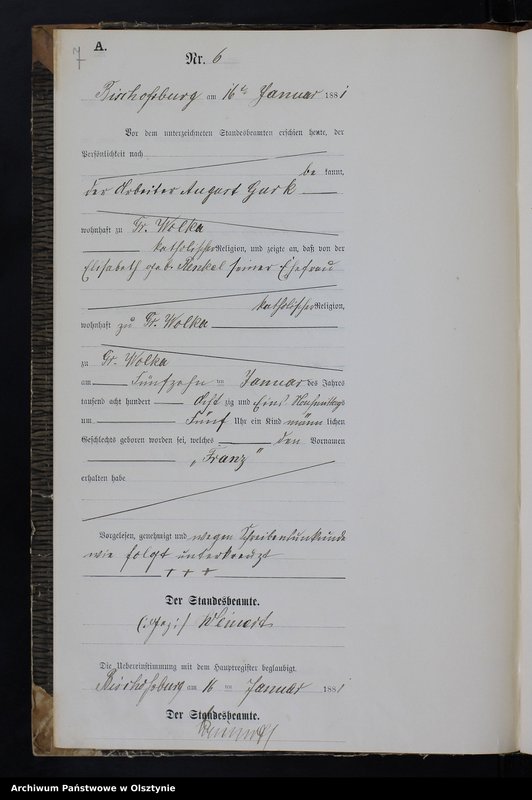 7
A.
Nr. 6
Bischofsburg am 16ten Januar 1881
Vor dem unterzeichneten Standesbeamten erschien heute, der
Persönlichkeit nach
be kannt,
der Arbeiter August Gurk
wohnhaft zu Gr. Wolka
katholischer Religion, und zeigte an, daß von der
Elisabeth geb. Renkel seiner Ehefrau
katholischer Religion,
wohnhaft zu Gr. Wolka
zu Gr. Wolka
am fünfzehn ten Januar des Jahres
tausend acht hundert Acht zig und Eins Nachmittags
um Fünf Uhr ein Kind männ lichen
Geschlechts geboren worden sei, welches den Vornamen
„Franz"
erhalten habe.
Vorgelesen, genehmigt und wegen Schreibensunkunde
wie folgt unterkreuzt
+ + +
Der Standesbeamte.
(:gez:) Weinert
Die Uebereinstimmung mit dem Hauptregister beglaubigt.
Bischofsburg am 16 ten Januar 1881
Der Standesbeamte.
Weinert
Archiwum Państwowe w Olsztynie